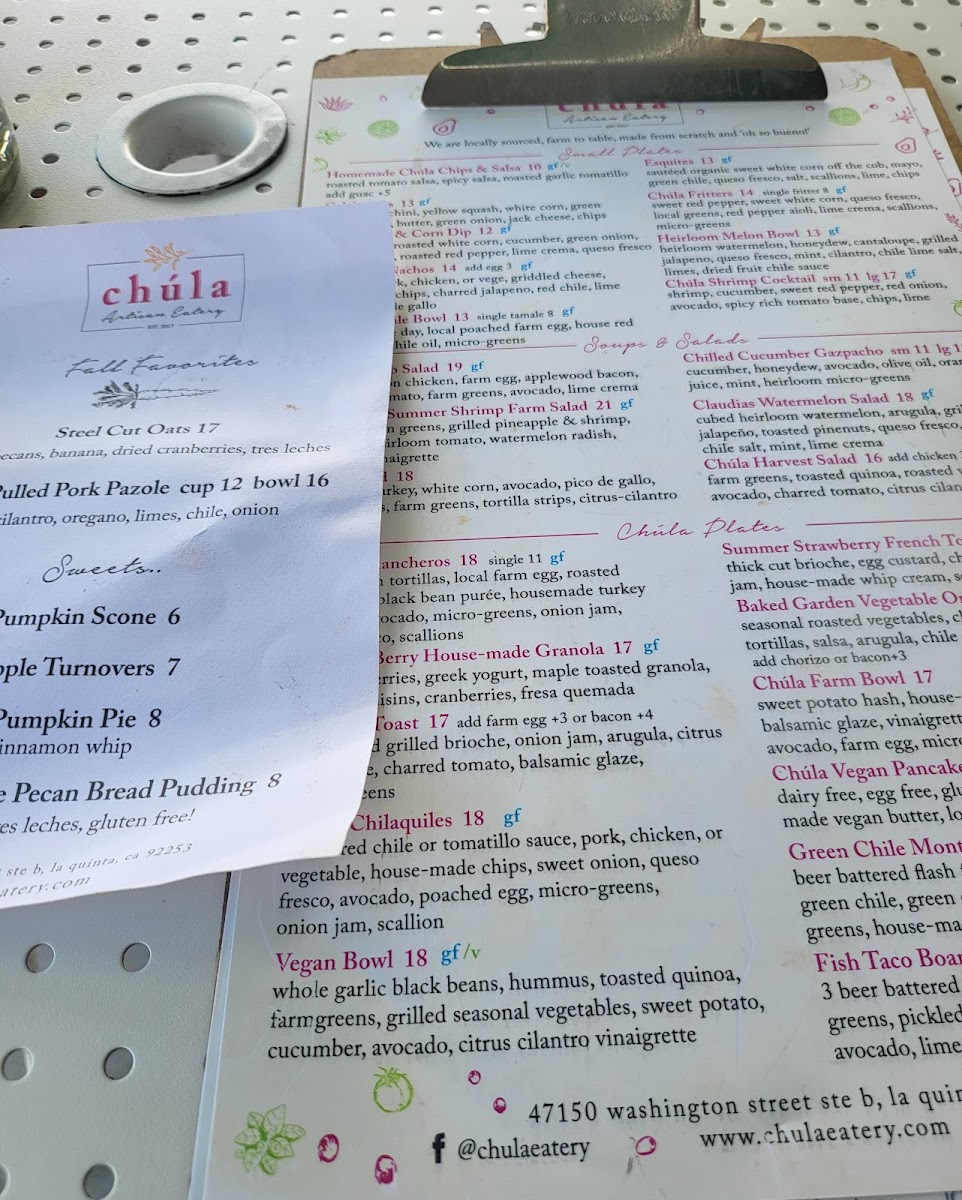 chúla
Artisan Eatery
EST. 2017
Fall Favorites
Steel Cut Oats 17
pecans, banana, dried cranberries, tres leches
Pulled Pork Pazole cup 12 bowl 16
cilantro, oregano, limes, chile, onion
Sweets..
Pumpkin Scone 6
Turnovers 7
Pumpkin Pie 8
cinnamon whip
Pecan Bread Pudding 8
tres leches, gluten free!
ste b, la quinta, ca 92253
eatery.com
chúla
Artisan Eatery
We are locally sourced, farm to table, made from scratch and 'oh so bueno!'
Small Plates
Homemade Chúla Chips & Salsa 10 gf/v
roasted tomato salsa, spicy salsa, roasted garlic tomatillo
add guac +5
13 gf
yellow squash, white corn, green
butter, green onion, jack cheese, chips
& Corn Dip 12 gf
roasted white corn, cucumber, green onion,
roasted red pepper, lime crema, queso fresco
Nachos 14 add egg 3 gf
chicken, or vege, griddled cheese,
chips, charred jalapeno, red chile, lime
gallo
Bowl 13 single tamale 8 gf
day, local poached farm egg, house red
chile oil, micro-greens
Esquites 13 gf
sautéed organic sweet white corn off the cob, mayo,
green chile, queso fresco, salt, scallions, lime, chips
Chúla Fritters 14 single fritter 8 gf
sweet red pepper, sweet white corn, queso fresco,
local greens, red pepper aioli, lime crema, scallions,
micro-greens
Heirloom Melon Bowl 13 gf
heirloom watermelon, honeydew, cantaloupe, grilled
jalapeno, queso fresco, mint, cilantro, chile lime salt,
limes, dried fruit chile sauce
Chúla Shrimp Cocktail sm 11 lg 17 gf
shrimp, cucumber, sweet red pepper, red onion,
avocado, spicy rich tomato base, chips, lime
Soups & Salads
Salad 19 gf
chicken, farm egg, applewood bacon,
farm greens, avocado, lime crema
Summer Shrimp Farm Salad 21 gf
greens, grilled pineapple & shrimp,
heirloom tomato, watermelon radish,
vinaigrette
18
turkey, white corn, avocado, pico de gallo,
farm greens, tortilla strips, citrus-cilantro
Chilled Cucumber Gazpacho sm 11 lg
cucumber, honeydew, avocado, olive oil,
juice, mint, heirloom micro-greens
Claudias Watermelon Salad 18 gf
cubed heirloom watermelon, arugula,
jalapeño, toasted pinenuts, queso fresco,
chile salt, mint, lime crema
Chúla Harvest Salad 16 add chicken
farm greens, toasted quinoa, roasted
avocado, charred tomato, citrus
Chúla Plates
Rancheros 18 single 11 gf
tortillas, local farm egg, roasted
black bean purée, housemade turkey
avocado, micro-greens, onion jam,
scallions
Berry House-made Granola 17 gf
greek yogurt, maple toasted granola,
raisins, cranberries, fresa quemada
Toast 17 add farm egg +3 or bacon +4
grilled brioche, onion jam, arugula, citrus
charred tomato, balsamic glaze,
Chilaquiles 18 gf
red chile or tomatillo sauce, pork, chicken, or
vegetable, house-made chips, sweet onion, queso
fresco, avocado, poached egg, micro-greens,
onion jam, scallion
Vegan Bowl 18 gf/v
whole garlic black beans, hummus, toasted quinoa,
farmgreens, grilled seasonal vegetables, sweet potato,
cucumber, avocado, citrus cilantro vinaigrette
Summer Strawberry French
thick cut brioche, egg custard,
jam, house-made whip cream,
Baked Garden Vegetable
seasonal roasted vegetables,
tortillas, salsa, arugula, chile
add chorizo or bacon+3
Chúla Farm Bowl 17
sweet potato hash, house-
balsamic glaze,
avocado, farm egg,
Chúla Vegan
dairy free, egg free,
made vegan butter,
Green Chile
beer battered flash
green chile, green
greens,
Fish Taco
3 beer battered
greens, pickled
avocado, lime
47150 washington street ste b, la
@chulaeatery
www.chulaeatery.com